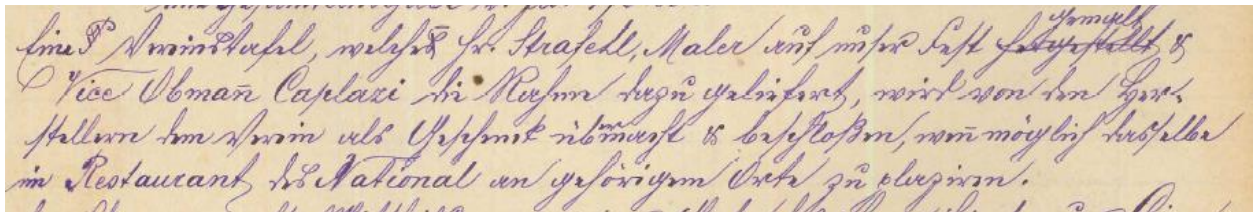 Eine Vereinstafel, welches Hr. Strafehl, Maler auf unser Fest hergestellt gemalt &
Vice Obmañ Caplazi die Rahme dazu geliefert, wird von den Her-
stellern dem Verein als Geschenk übermacht & beschloßen, weñ möglich dasselbe
im Restaurant des National an gehörigem Orte zu plaziren.